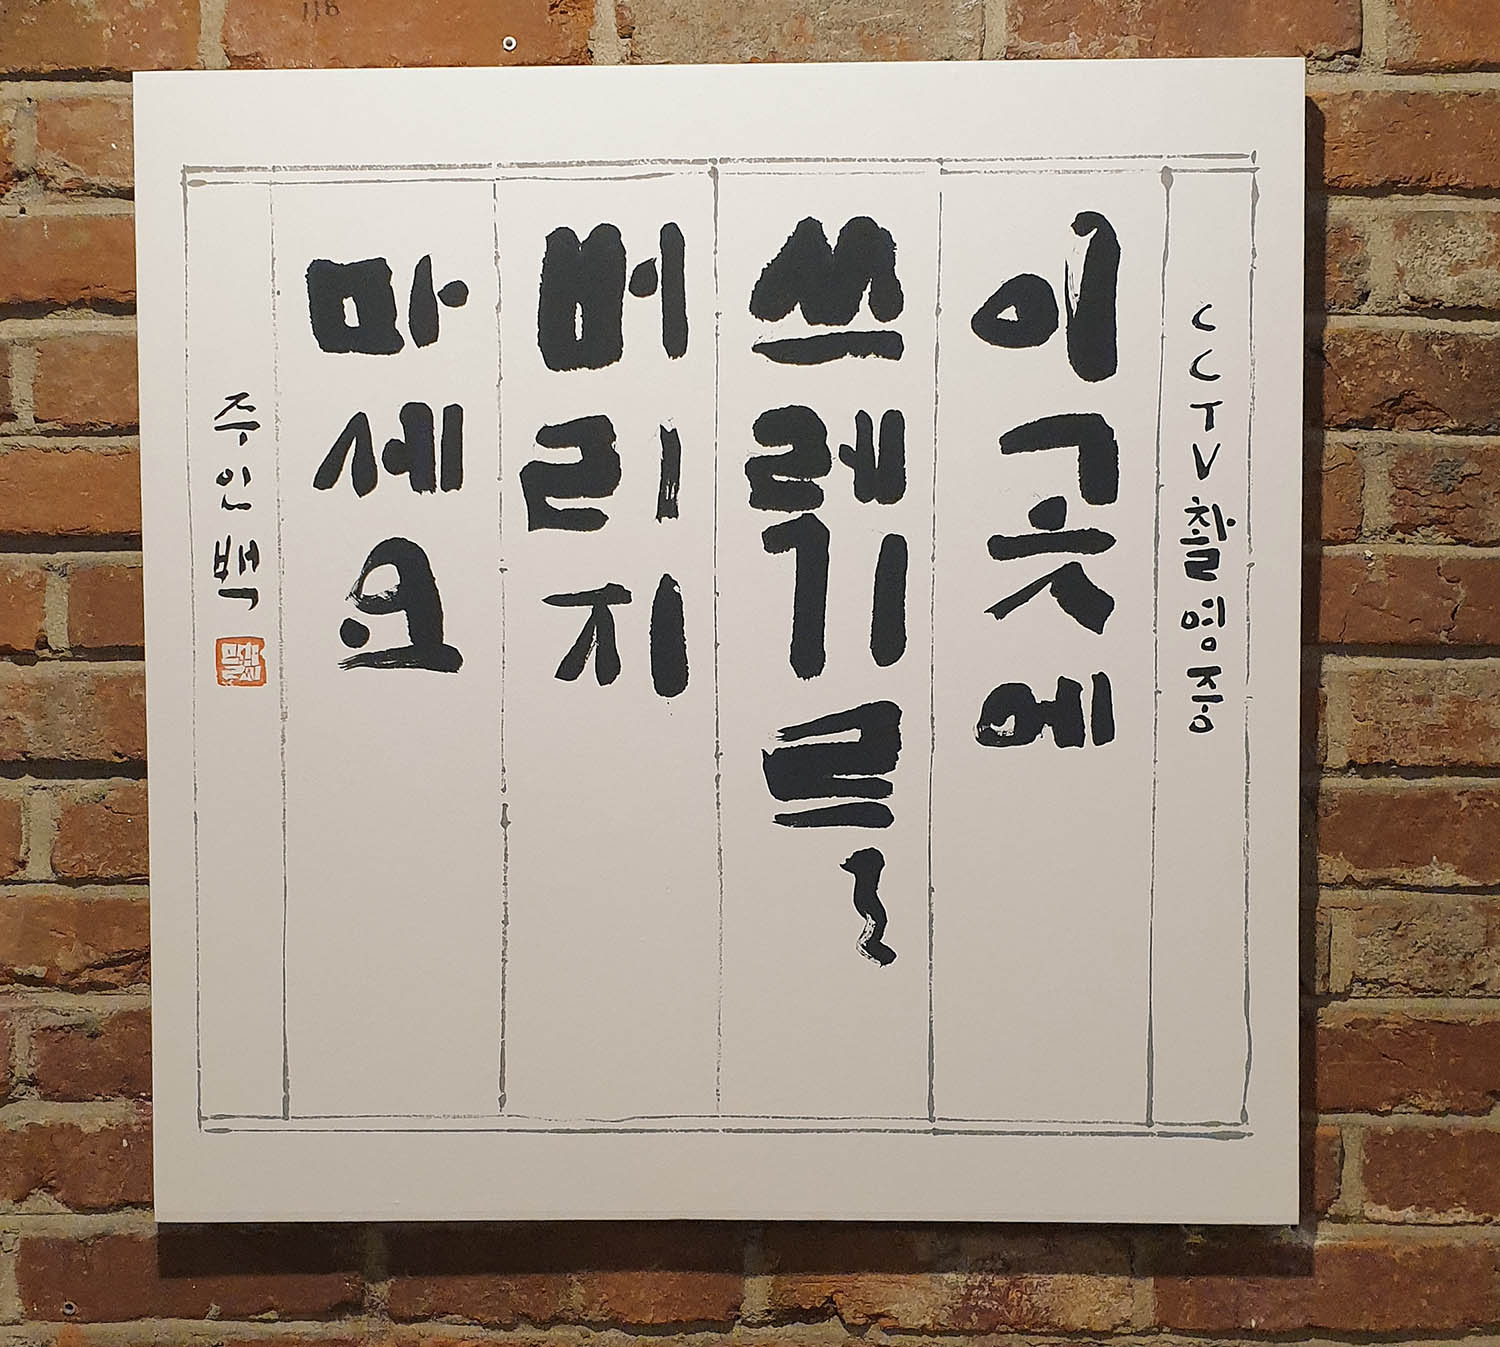 CCTV촬영중
이곳에
쓰레기를
버리지
마세요
주인백